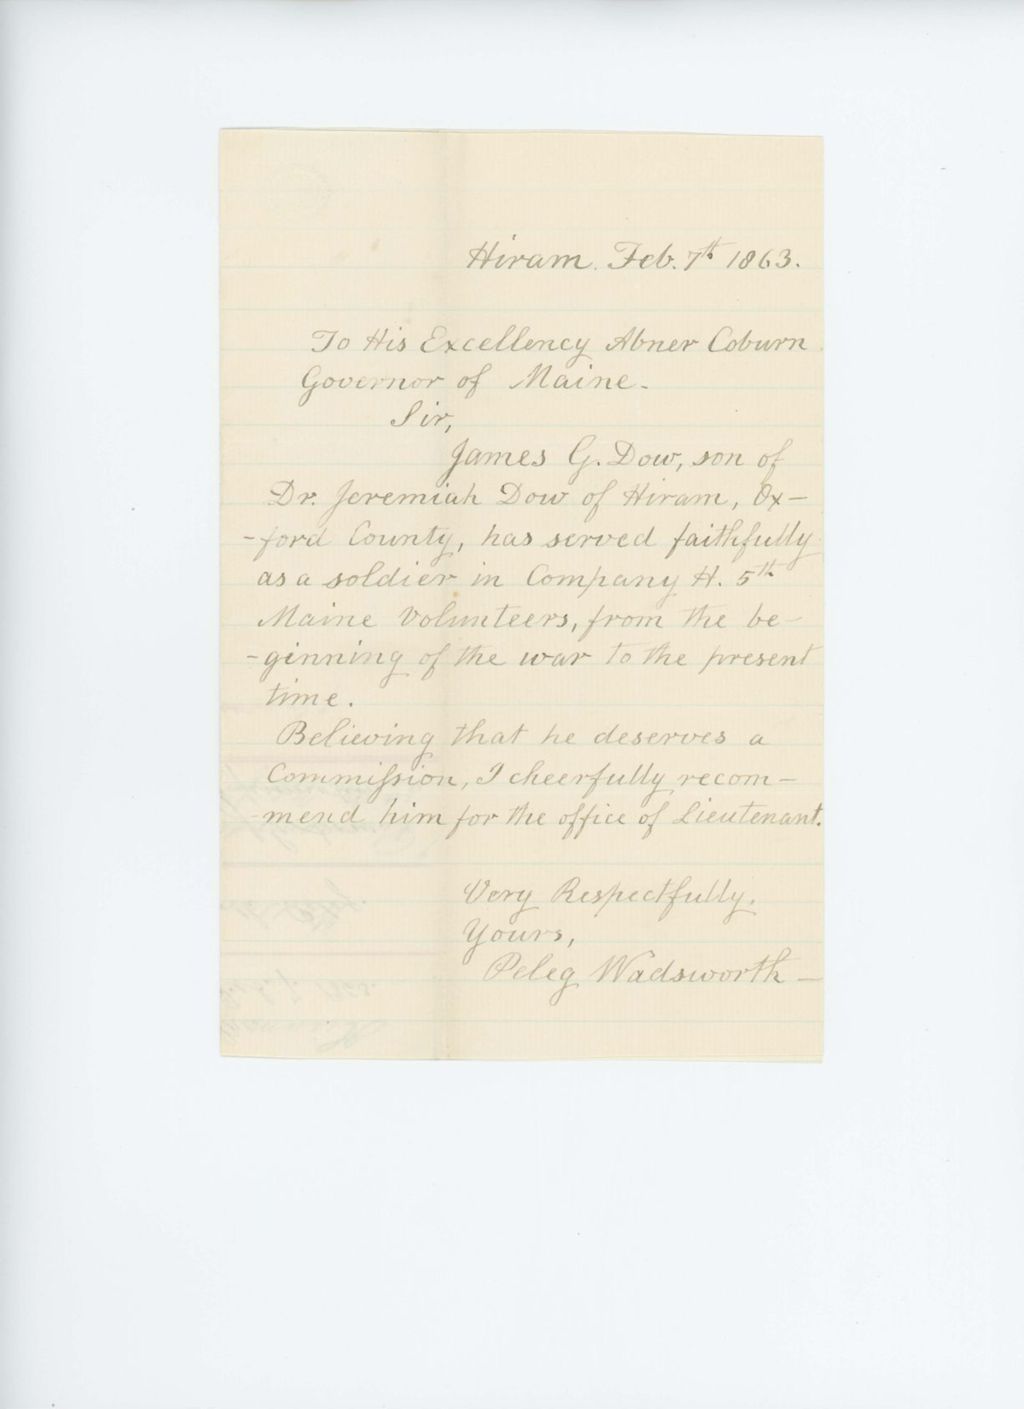 Hiram. Feb. 7th 1863.
To His Excellency Abner Coburn
Governor of Maine.
Sir,
James G. Dow, son of
Dr. Jeremiah Dow of Hiram, Ox-
-ford County, has served faithfully
as a soldier in Company H. 5th
Maine Volunteers, from the be-
-ginning of the war to the present
time.
Believing that he deserves a
Commission, I cheerfully recom-
mend him for the office of Lieutenant.
Very Respectfully,
Yours,
Peleg Wadsworth